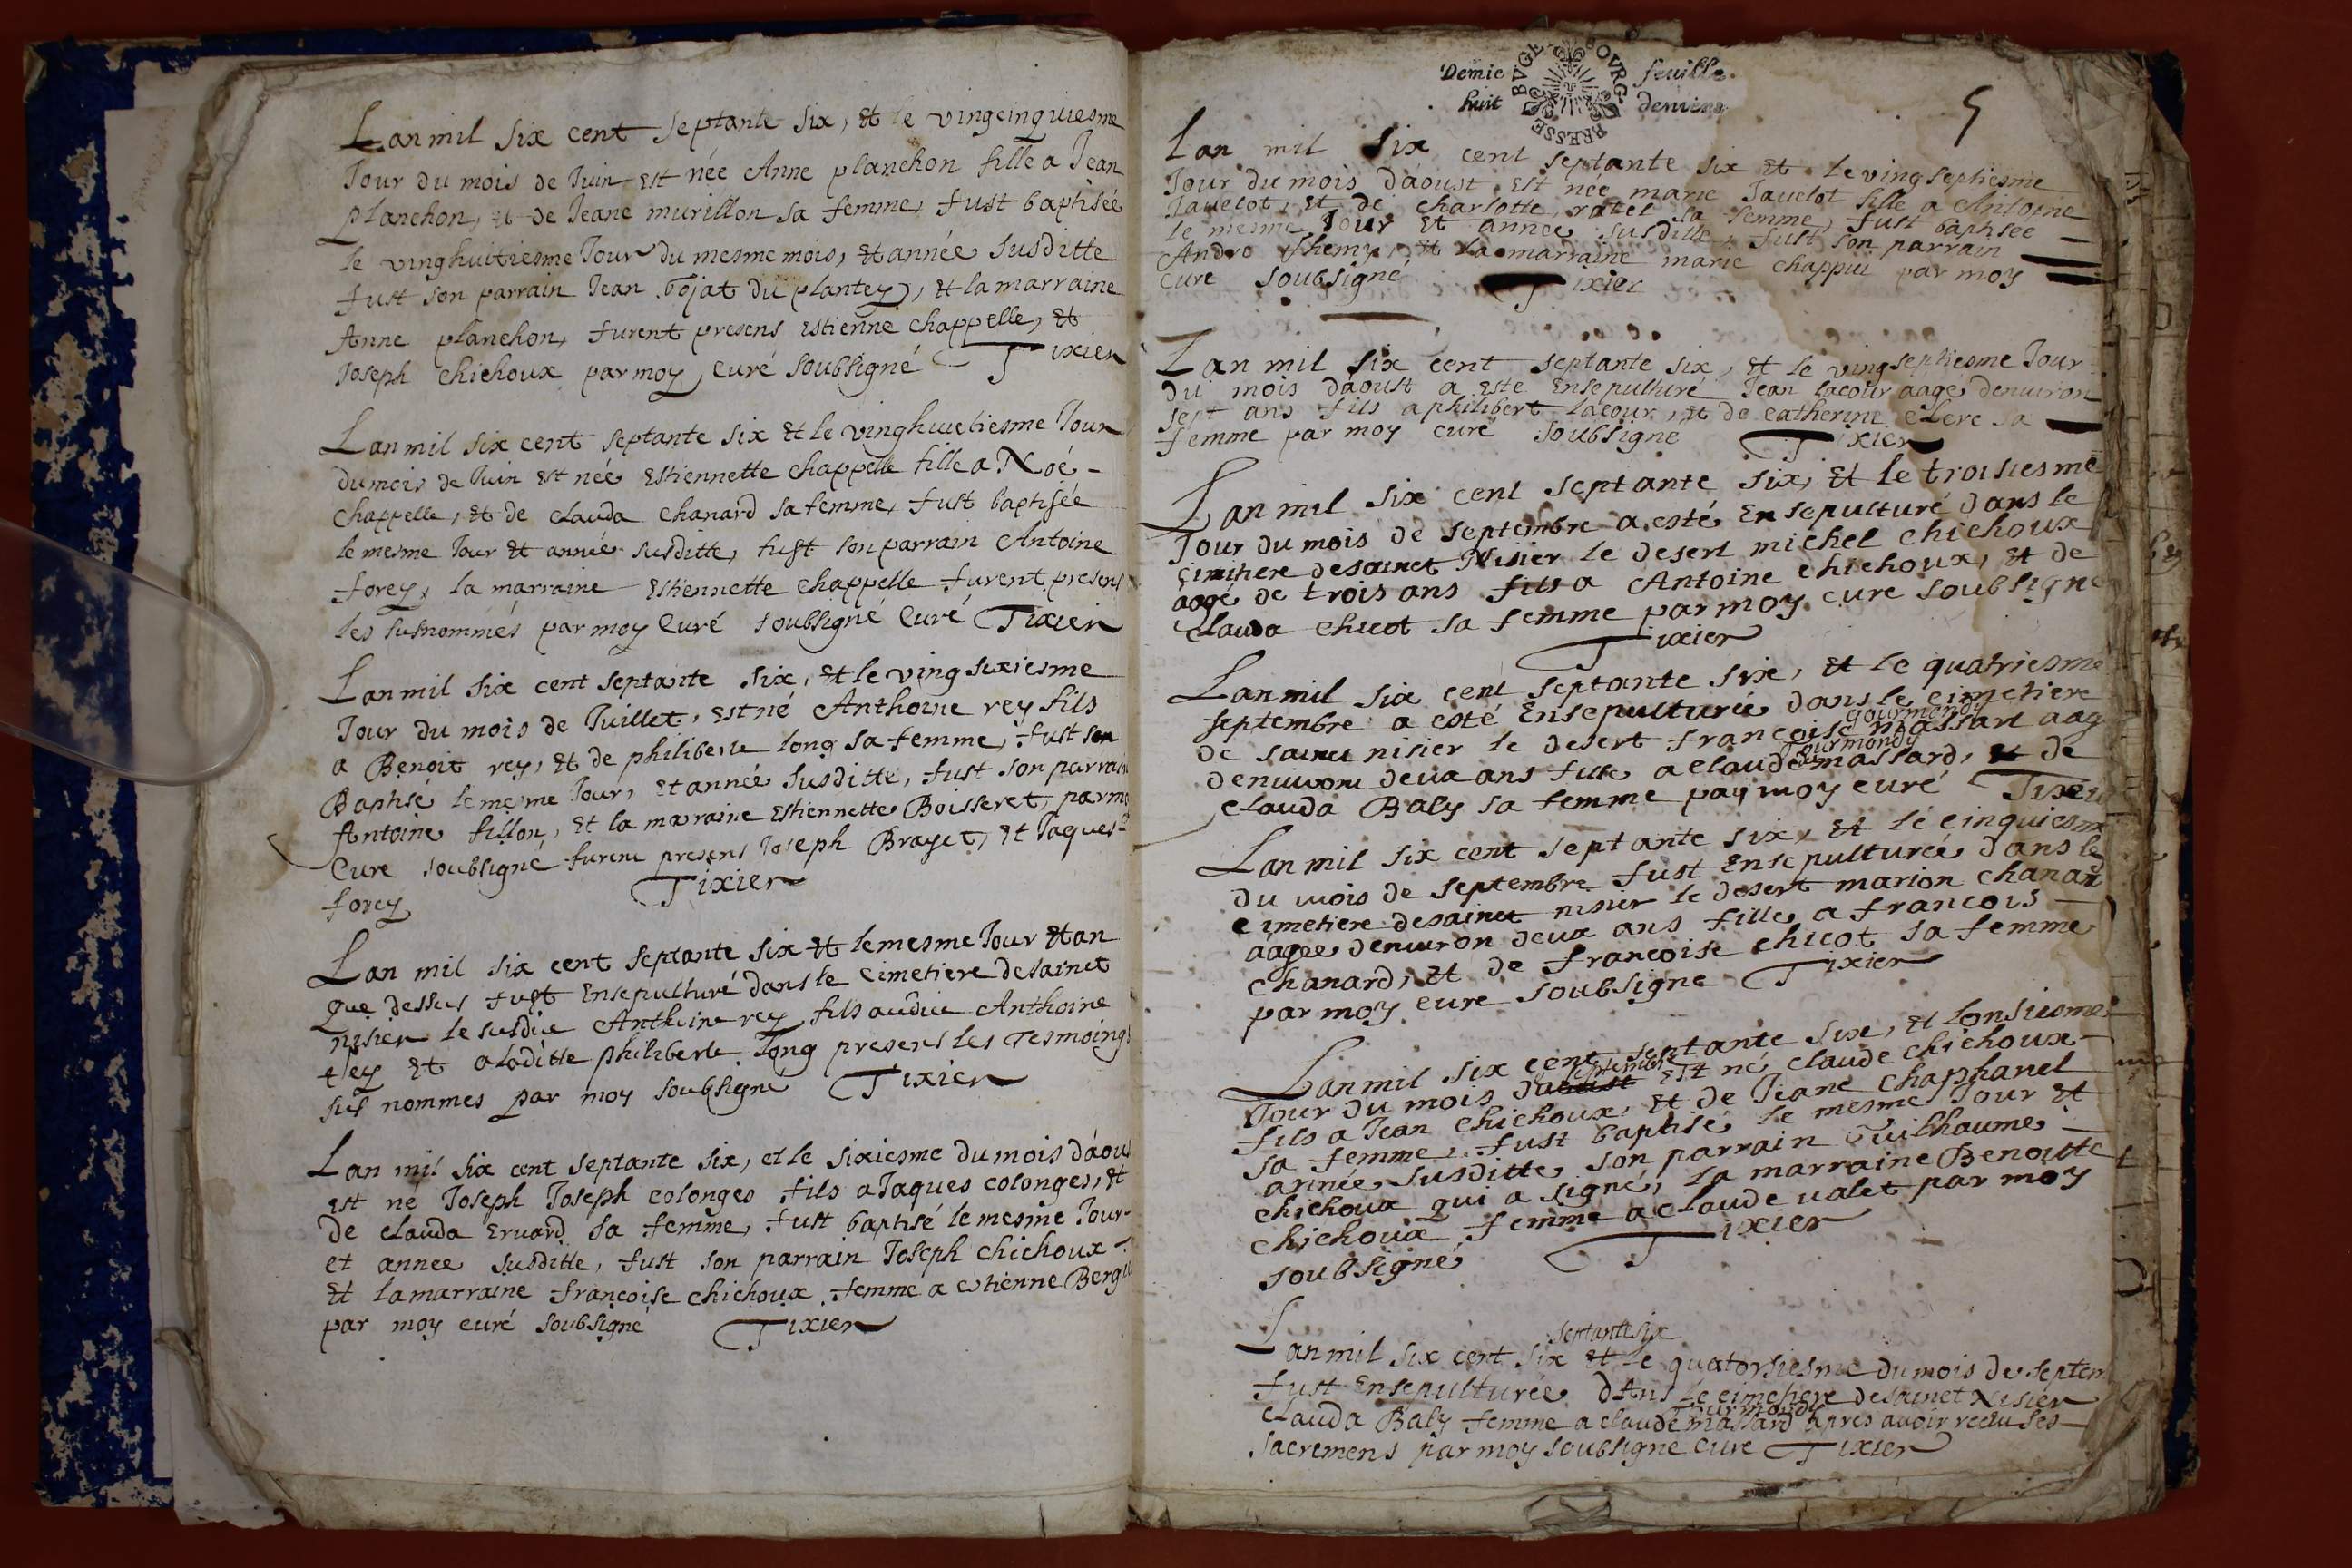 Lan mil six cent septante six, et le vingcinquiesme
Jour du mois de Juin est née Anne planchon fille a Jean
planchon, et de Jeane murillon sa femme, fust baptisée
le vinghuitiesme Jour du mesme mois, et année susditte
fust son parrain Jean bojat du plantey, et la marraine
Anne planchon, furent presens estienne chappelle, et
Joseph chichoux par moy curé soubsigné Tixier
Lan mil six cent septante six et le vinghuietiesme Jour
du mois de Juin est née Estiennette chappelle fille a Noé
chappelle, et de clauda chanard sa femme, fust baptisée
le mesme Jour et année susditte, fust son parrain Antoine
forey, la marraine Estiennette chappelle furent presens
les susnommés par moy Curé soubsigné Curé Tixier
Lan mil six cent septante six, et le ving sixiesme
Jour du mois de Juillet, est né Anthoine rey fils
a Benoit rey, et de philiberte long sa femme, fust son
Baptisé le mesme Jour, et année susditte, fust son parrain
Antoine fillon, et la marraine Estiennette Boisseret, par moy
Cure soubsigné furent presens Joseph Brayet, et Jaques
forey Tixier
Lan mil six cent septante six et le mesme Jour et an
que dessus fust Ensepulturé dans le Cimetiere de sainct
nisier le susdict Anthoine rey fils audict Anthoine
rey et a laditte philiberte long presens les Tesmoings
sus nommes par moy soubsigné Tixier
Lan mil six cent septante six, et le sixiesme du mois d'aou
est né Joseph Joseph colonges fils a Jaques colonges, et
de clauda Eruard sa femme, fust baptisé le mesme Jour
et annee susditte, fust son parrain Joseph chichoux
et la marraine françoise chichoux femme a estienne
par moy curé soubsigné Tixier
Demie feuille
huit deniers
BRESSE BVGE BOVRG
5
Lan mil six cent septante six et le ving septiesme
Jour du mois d'aoust est née marie Jauelot fille a Antoine
Jauelot, et de charlotte ratel sa femme, fust baptisée
le mesme Jour et annee susditte, fust son parrain
Andre themy, et la marraine marie chappui par moy
Cure soubsigné Tixier
Lan mil six cent septante six, et le ving septiesme Jour
du mois d'aoust a esté Ensepulturé Jean lacour aagé denuiron
sept ans fils a philibert lacour, et de catherine clerc sa
femme par moy curé soubsigné Tixier
Lan mil six cent septante six, et le troisiesme
Jour du mois de septembre a esté Ensepulturé dans le
cimitiere de sainct Nisier le desert michel chichoux
aagé de trois ans fils a Antoine chichoux, et de
clauda chicot sa femme par moy cure soubsigné
Tixier
Lan mil six cent septante six, et le quatriesme
septembre a esté Ensepulturée dans le cimetiere
gourmondy
de sainct nisier le desert françoise massart aag
gourmondy
denuiron deux ans fille a claude massard, et de
clauda Baly sa femme par moy curé Tixier
Lan mil six cent septante six, et le cinquiesme
du mois de septembre fust Ensepulturée dans le
cimetiere de sainct nisier le desert marion chanard
aagée denuiron deux ans fille a francois
chanard, et de françoise chicot sa femme
par moy cure soubsigne Tixier
Lan mil six cent septante six, et lonsiesme
septembre
Jour du mois daoust est né claude chichoux
fils a Jean chichoux, et de Jeane chaphanel
sa femme, fust baptisé le mesme Jour et
année susditte, son parrain Guilhaume
chichoux qui a signé, la marraine Benoitte
chichoux femme a claude valet par moy
soubsigné Tixier
septante six
Lan mil six cent six et le quatorsiesme du mois de septem
fust Ensepulturée dans le cimetiere de sainct Nisier
gourmondy
clauda Baly femme a claude massard apres auoir receu ses
sacremens par moy soubsigné Cure Tixier